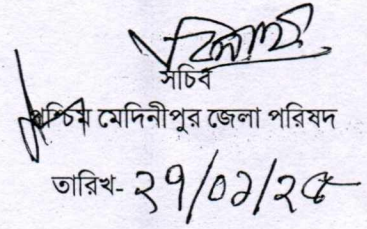 সচিব
পশ্চিম মেদিনীপুর জেলা পরিষদ
তারিখ- ২৭/০১/২৫